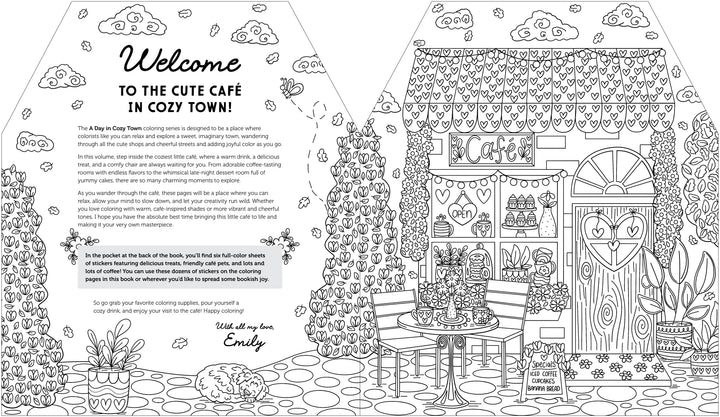 Welcome
TO THE CUTE CAFÉ
IN COZY TOWN!
The A Day in Cozy Town coloring series is designed to be a place where
colorists like you can relax and explore a sweet, imaginary town, wandering
through all the cute shops and cheerful streets and adding joyful color as you go.
In this volume, step inside the coziest little café, where a warm drink, a delicious
treat, and a comfy chair are always waiting for you. From adorable coffee-tasting
rooms with endless flavors to the whimsical late-night dessert room full of
yummy cakes, there are so many charming moments to explore.
As you wander through the café, these pages will be a place where you can
relax, allow your mind to slow down, and let your creativity run wild. Whether
you love coloring with warm, café-inspired shades or more vibrant and cheerful
tones, I hope you have the absolute best time bringing this little café to life and
making it your very own masterpiece.
In the pocket at the back of the book, you'll find six full-color sheets
of stickers featuring delicious treats, friendly café pets, and lots and
lots of coffee! You can use these dozens of stickers on the coloring
pages in this book or wherever you'd like to spread some bookish joy.
So go grab your favorite coloring supplies, pour yourself a
cozy drink, and enjoy your visit to the café! Happy coloring!
With all my love,
Emily
Café
OPEN
Specials
ICED COFFEE
CUPCAKES
BANANA BREAD